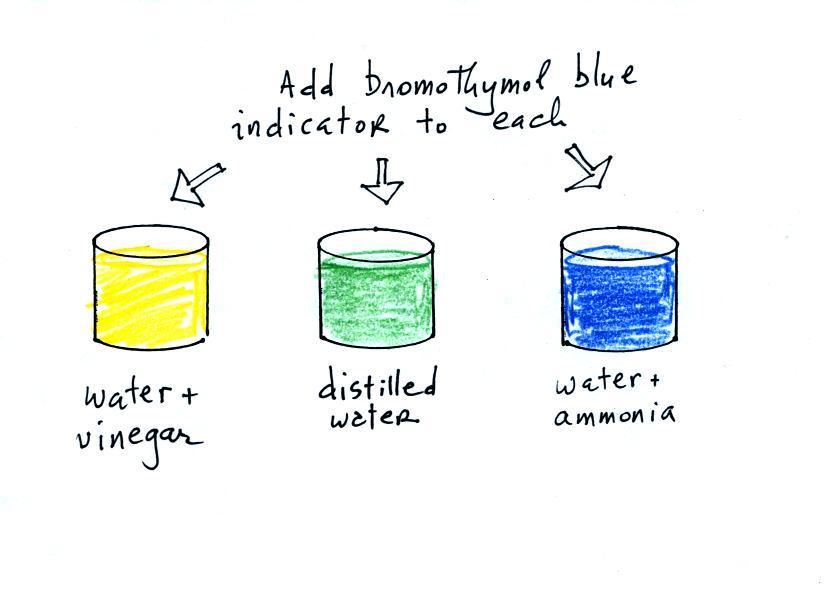 Add bromothymol blue
indicator to each
water +
vinegar
distilled
water
water +
ammonia